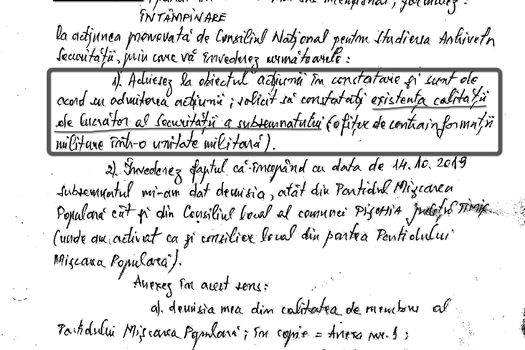 ÎNTÂMPINARE
la acțiunea promovată de Consiliul Național pentru Studierea Arhivelor
Securității, prin care vă învederez următoarele:
1). Achiesez la obiectul acțiunii în constatare și sunt de
acord cu admiterea acțiunii; solicit să constatați existența calității
de lucrător al Securității a subsemnatului (ofițer de contrainformații
militare într-o unitate militară).
2). Învederez faptul că începând cu data de 14.10.2019
subsemnatul mi-am dat demisia, atât din Partidul Mișcarea
Populară cât și din Consiliul local al comunei Pișchia județul Timiș
(unde am activat ca și consilier local din partea Partidului
Mișcarea Populară).
Anexez în acest sens:
a). demisia mea din calitatea de membru al
Partidului Mișcarea Populară; în copie = Anexa nr. 1;